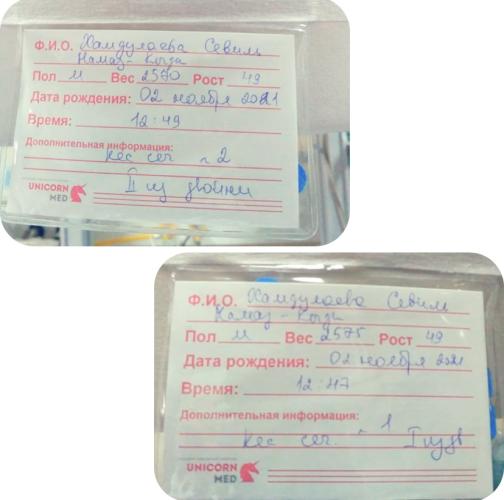 Ф.И.О. Хамдулаева Севиль
Намаз-Кызы
Пол м Вес 2570 Рост 49
Дата рождения: 02 ноября 2021
Время: 12:49
Дополнительная информация:
кес сеч ~ 2
II из двойни
UNICORN
MED
Ф.И.О. Хамдулаева Севиль
Намаз-Кызы
Пол м Вес 2575 Рост 49
Дата рождения: 02 ноября 2021
Время: 12:47
Дополнительная информация:
~ 1
кес сеч. I из дв
UNICORN
MED